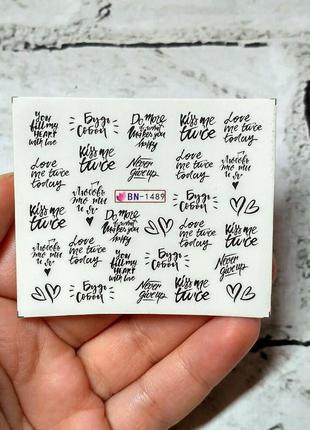 You
fill my
HEART
with love
Будь
Собой
Do More
of what
Makes you
happy
Kiss me
twice
Love
me twice
today
Love me
twice
today
Kiss me
twice
Never
give up
Love me
twice
today
Kiss me
twice
Любовь
это ты
и я
BN-1489
Будь
Собой
Kiss me
twice
Do More
of what
Makes you
happy
Love
me twice
today
Любовь
это ты
и я
Love me
twice
today
You
fill my
HEART
with love
Любовь
это ты
и я
Never
give up
Будь
Собой
Never
give up
Kiss me
twice